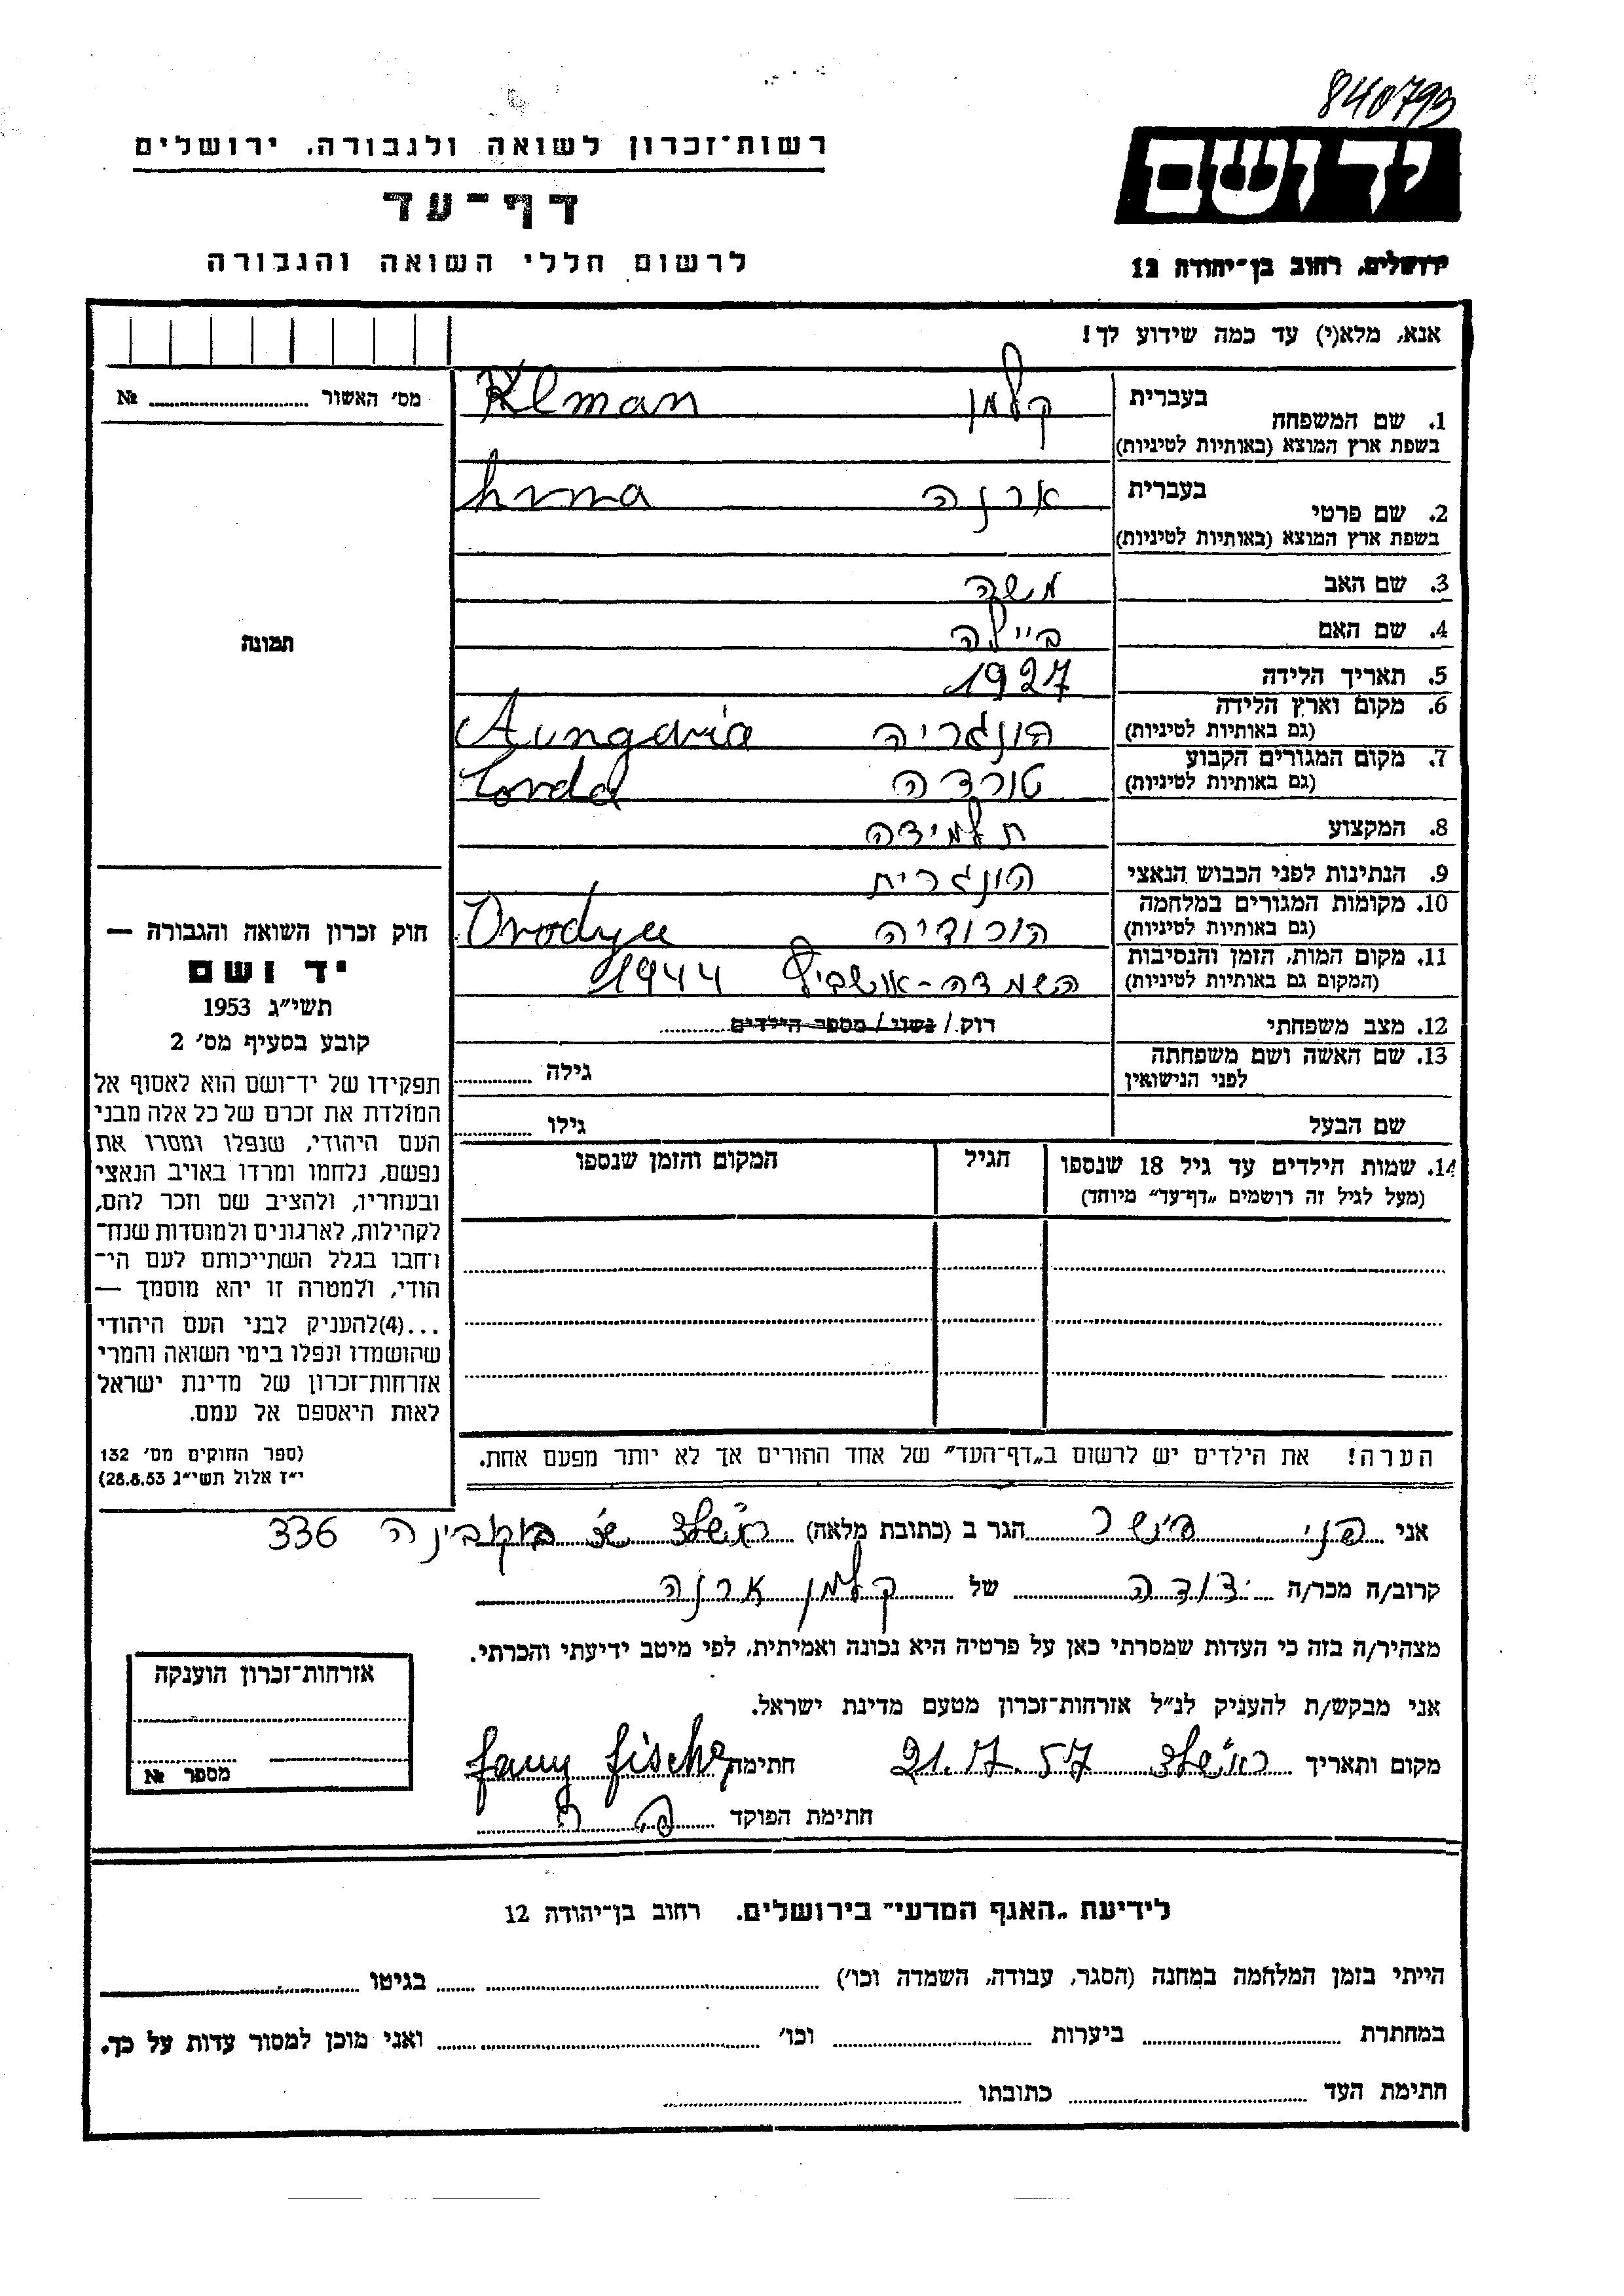 840793
רשות־זכרון לשואה ולגבורה, ירושלים
יד ושם
דף־עד
ירושלים, רחוב בן־יהודה 12
לרשום חללי השואה והגבורה
אנא, מלא(י) עד כמה שידוע לך!
מס׳ האשור № 
1. שם המשפחה
בעברית קלמן Klman
בשפת ארץ המוצא (באותיות לטיניות)
2. שם פרטי
בעברית ארנה
בשפת ארץ המוצא (באותיות לטיניות)
3. שם האב משה
4. שם האם ביילה
תמונה
5. תאריך הלידה 1927
6. מקום וארץ הלידה הונגריה Aungaria
(גם באותיות לטיניות)
7. מקום המגורים הקבוע טורדה Torda
(גם באותיות לטיניות)
8. המקצוע תלמידה
9. הנתינות לפני הכבוש הנאצי הונגרית
10. מקומות המגורים במלחמה
(גם באותיות לטיניות)
11. מקום המות, הזמן והנסיבות השמדה-אושביץ 1944
(המקום גם באותיות לטיניות)
12. מצב משפחתי רוק / נשוי / מספר הילדים
13. שם האשה ושם משפחתה
לפני הנישואין גילה
שם הבעל גילו
14. שמות הילדים עד גיל 18 שנספו הגיל המקום והזמן שנספו
(מעל לגיל זה רושמים „דף־עד” מיוחד)
חוק זכרון השואה והגבורה —
יד ושם
תשי״ג 1953
קובע בסעיף מס׳ 2
תפקידו של יד־ושם הוא לאסוף אל
המולדת את זכרם של כל אלה מבני
העם היהודי, שנפלו ומסרו את
נפשם, נלחמו ומרדו באויב הנאצי
ובעוזריו, ולהציב שם וזכר להם,
לקהילות, לארגונים ולמוסדות שנח־
רבו בגלל השתייכותם לעם הי־
הודי, ולמטרה זו יהא מוסמך —
...(4)להעניק לבני העם היהודי
שהושמדו ונפלו בימי השואה והמרי
אזרחות־זכרון של מדינת ישראל
לאות היאספם אל עמם.
(ספר החוקים מס׳ 132
י״ז אלול תשי״ג 28.8.53)
הערה! את הילדים יש לרשום ב„דף־העד” של אחד ההורים אך לא יותר מפעם אחת.
אני פני פישר הגר ב (כתובת מלאה) ראשלצ שכ בוקובינה 336
קרוב/ה מכר/ה דודה של קלמן ארנה
מצהיר/ה בזה כי העדות שמסרתי כאן על פרטיה היא נכונה ואמיתית, לפי מיטב ידיעתי והכרתי.
אני מבקש/ת להעניק לנ״ל אזרחות־זכרון מטעם מדינת ישראל.
מקום ותאריך ראשלצ 21.7.57 חתימה fany fischer
חתימת הפוקד
אזרחות־זכרון הוענקה
מספר №
לידיעת „האגף המדעי” בירושלים. רחוב בן־יהודה 12
הייתי בזמן המלחמה במחנה (הסגר, עבודה, השמדה וכו׳) בגיטו
במחתרת ביערות וכו׳ ואני מוכן למסור עדות על כך.
חתימת העד כתובתו